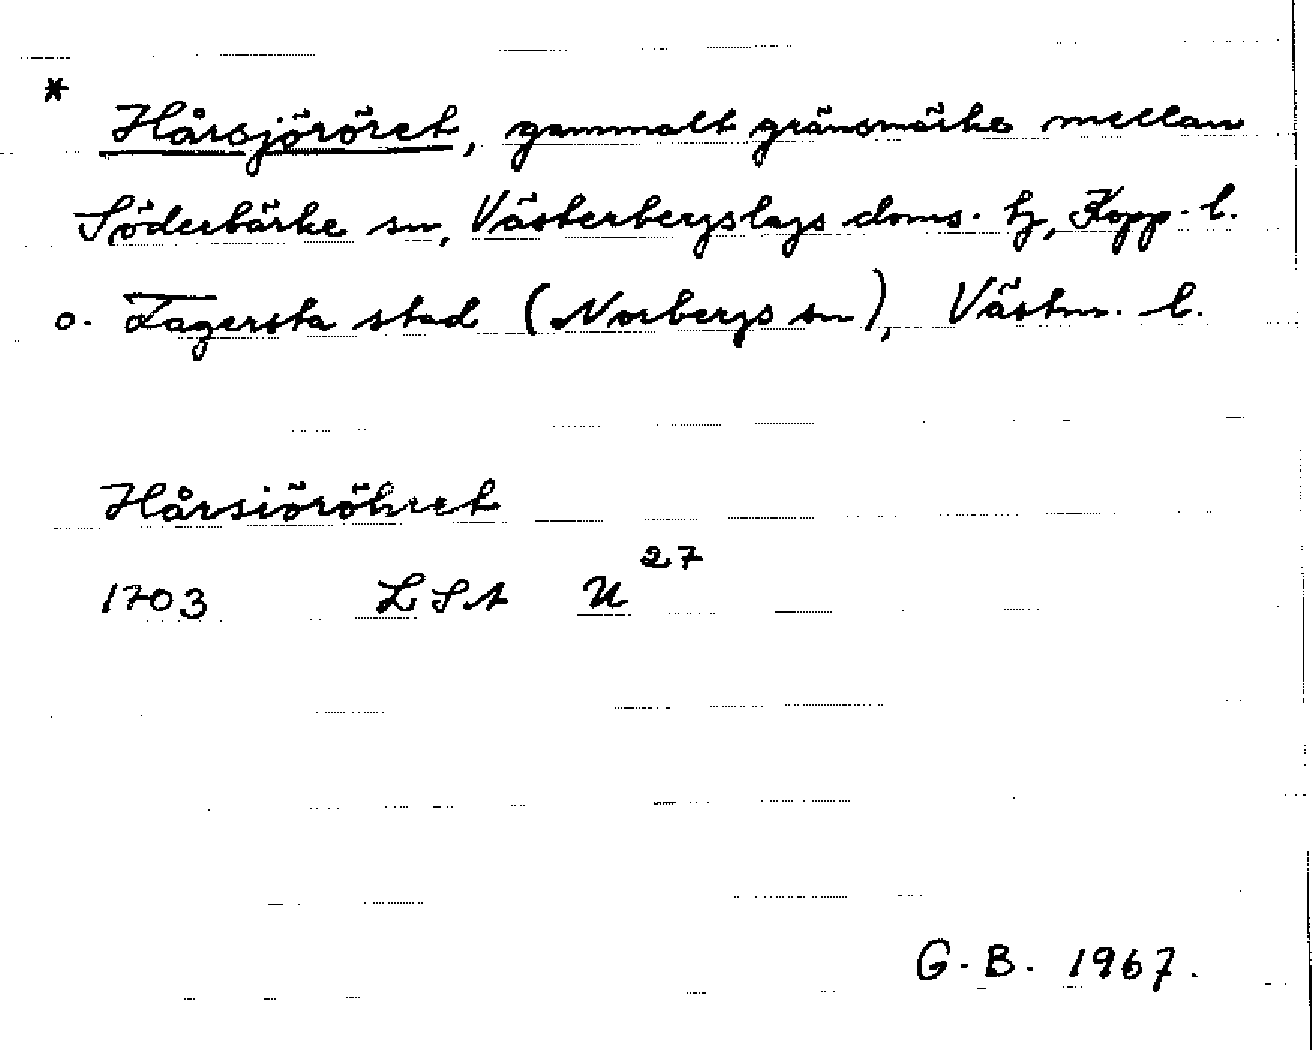 * Hårsjöröret, gammalt gränsmärke mellan
Söderbärke sn, Västerbergslags doms. hj, Kopp. l.
o. Fagersta stad (Norbergs sn), Västm. l.
Hårsiöröhret
1703 LSA U 27
G. B. 1967.